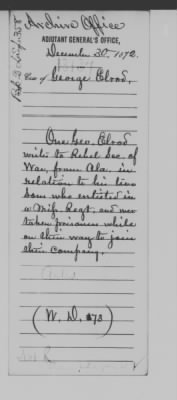 Archive Office
ADJUTANT GENERAL'S OFFICE,
December 30, 1872.
Case of George Blood,
One Geo. Blood
writes to Rebel Sec. of
War, from Ala. in
relation to his two
sons who enlisted in
a Miss. Regt. and were
taken prisoners while
on their way to join
their Company.
(W. D. 73)